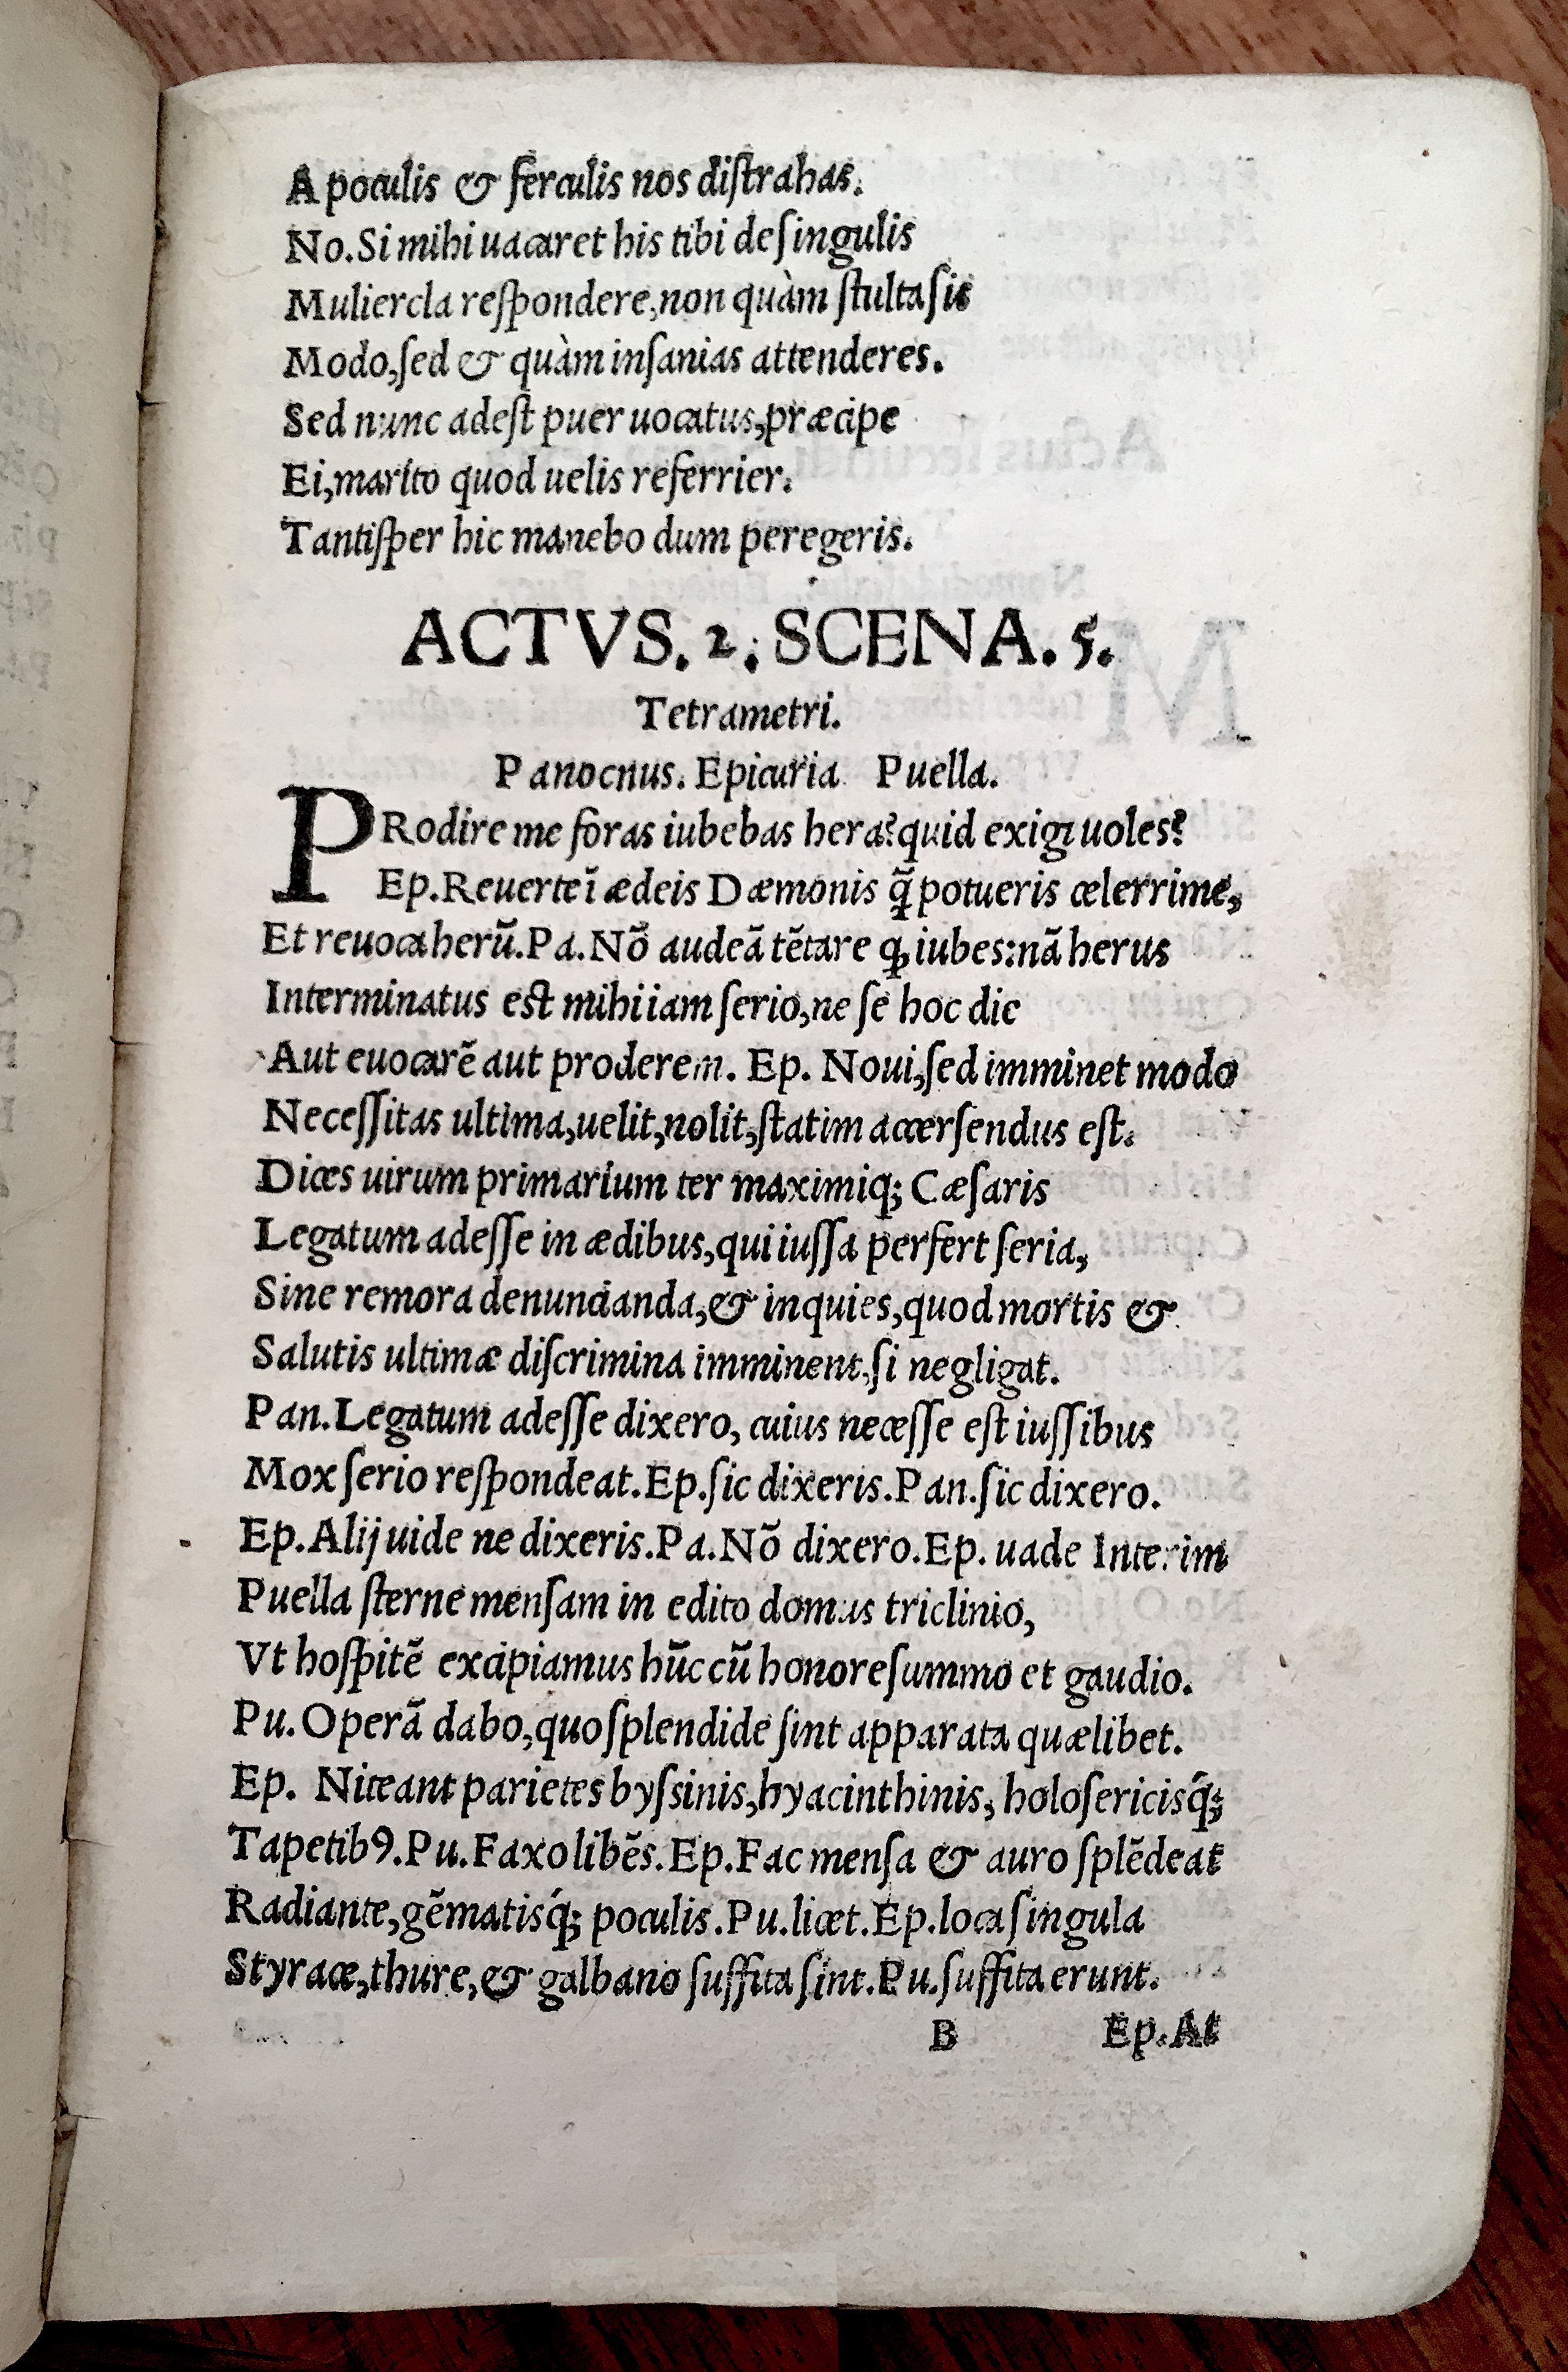 A poculis & ferculis nos diſtrahas.
No. Si mihi uacaret his tibi de ſingulis
Muliercla reſpondere, non quàm ſtulta ſis
Modo, ſed & quàm inſanias attenderes.
Sed nunc adeſt puer uocatus, præcipe
Ei, marito quod uelis referrier.
Tantiſper hic manebo dum peregeris.
ACTVS. 2. SCENA. 5.
Tetrametri.
Panocnus. Epicuria Puella.
PRodire me foras iubebas hera? quid exigi uoles?
Ep. Reuerte ĩ ædeis Dæmonis q̃ potueris celerrime,
Et reuoca herũ. Pa. Nõ audeã tẽtare ꝙ iubes: nã herus
Interminatus est mihi iam ſerio, ne ſe hoc die
Aut euocarẽ aut proderem. Ep. Noui, ſed imminet modo
Neceſſitas ultima, uelit, nolit, ſtatim accerſendus eſt.
Dices uirum primarium ter maximiq; Cæſaris
Legatum adeſſe in ædibus, qui iuſſa perfert ſeria,
Sine remora denuncianda, & inquies, quod mortis &
Salutis ultimæ diſcrimina imminent, ſi negligat.
Pan. Legatum adeſſe dixero, cuius neceſſe eſt iuſſibus
Mox ſerio reſpondeat. Ep. ſic dixeris. Pan. ſic dixero.
Ep. Alij uide ne dixeris. Pa. Nõ dixero. Ep. uade Interim
Puella ſterne menſam in edito domus triclinio,
Vt hoſpitẽ excipiamus hũc cũ honore ſummo et gaudio.
Pu. Operã dabo, quo ſplendide ſint apparata quælibet.
Ep. Niteant parietes byſsinis, hyacinthinis, holoſericisq́;
Tapetibꝰ. Pu. Faxo libẽs. Ep. Fac menſa & auro ſplẽdeat
Radiante, gẽmatisq́; poculis. Pu. licet. Ep. loca ſingula
Styrace, thure, & galbano ſuffita ſint. Pu. ſuffita erunt.
B Ep. At